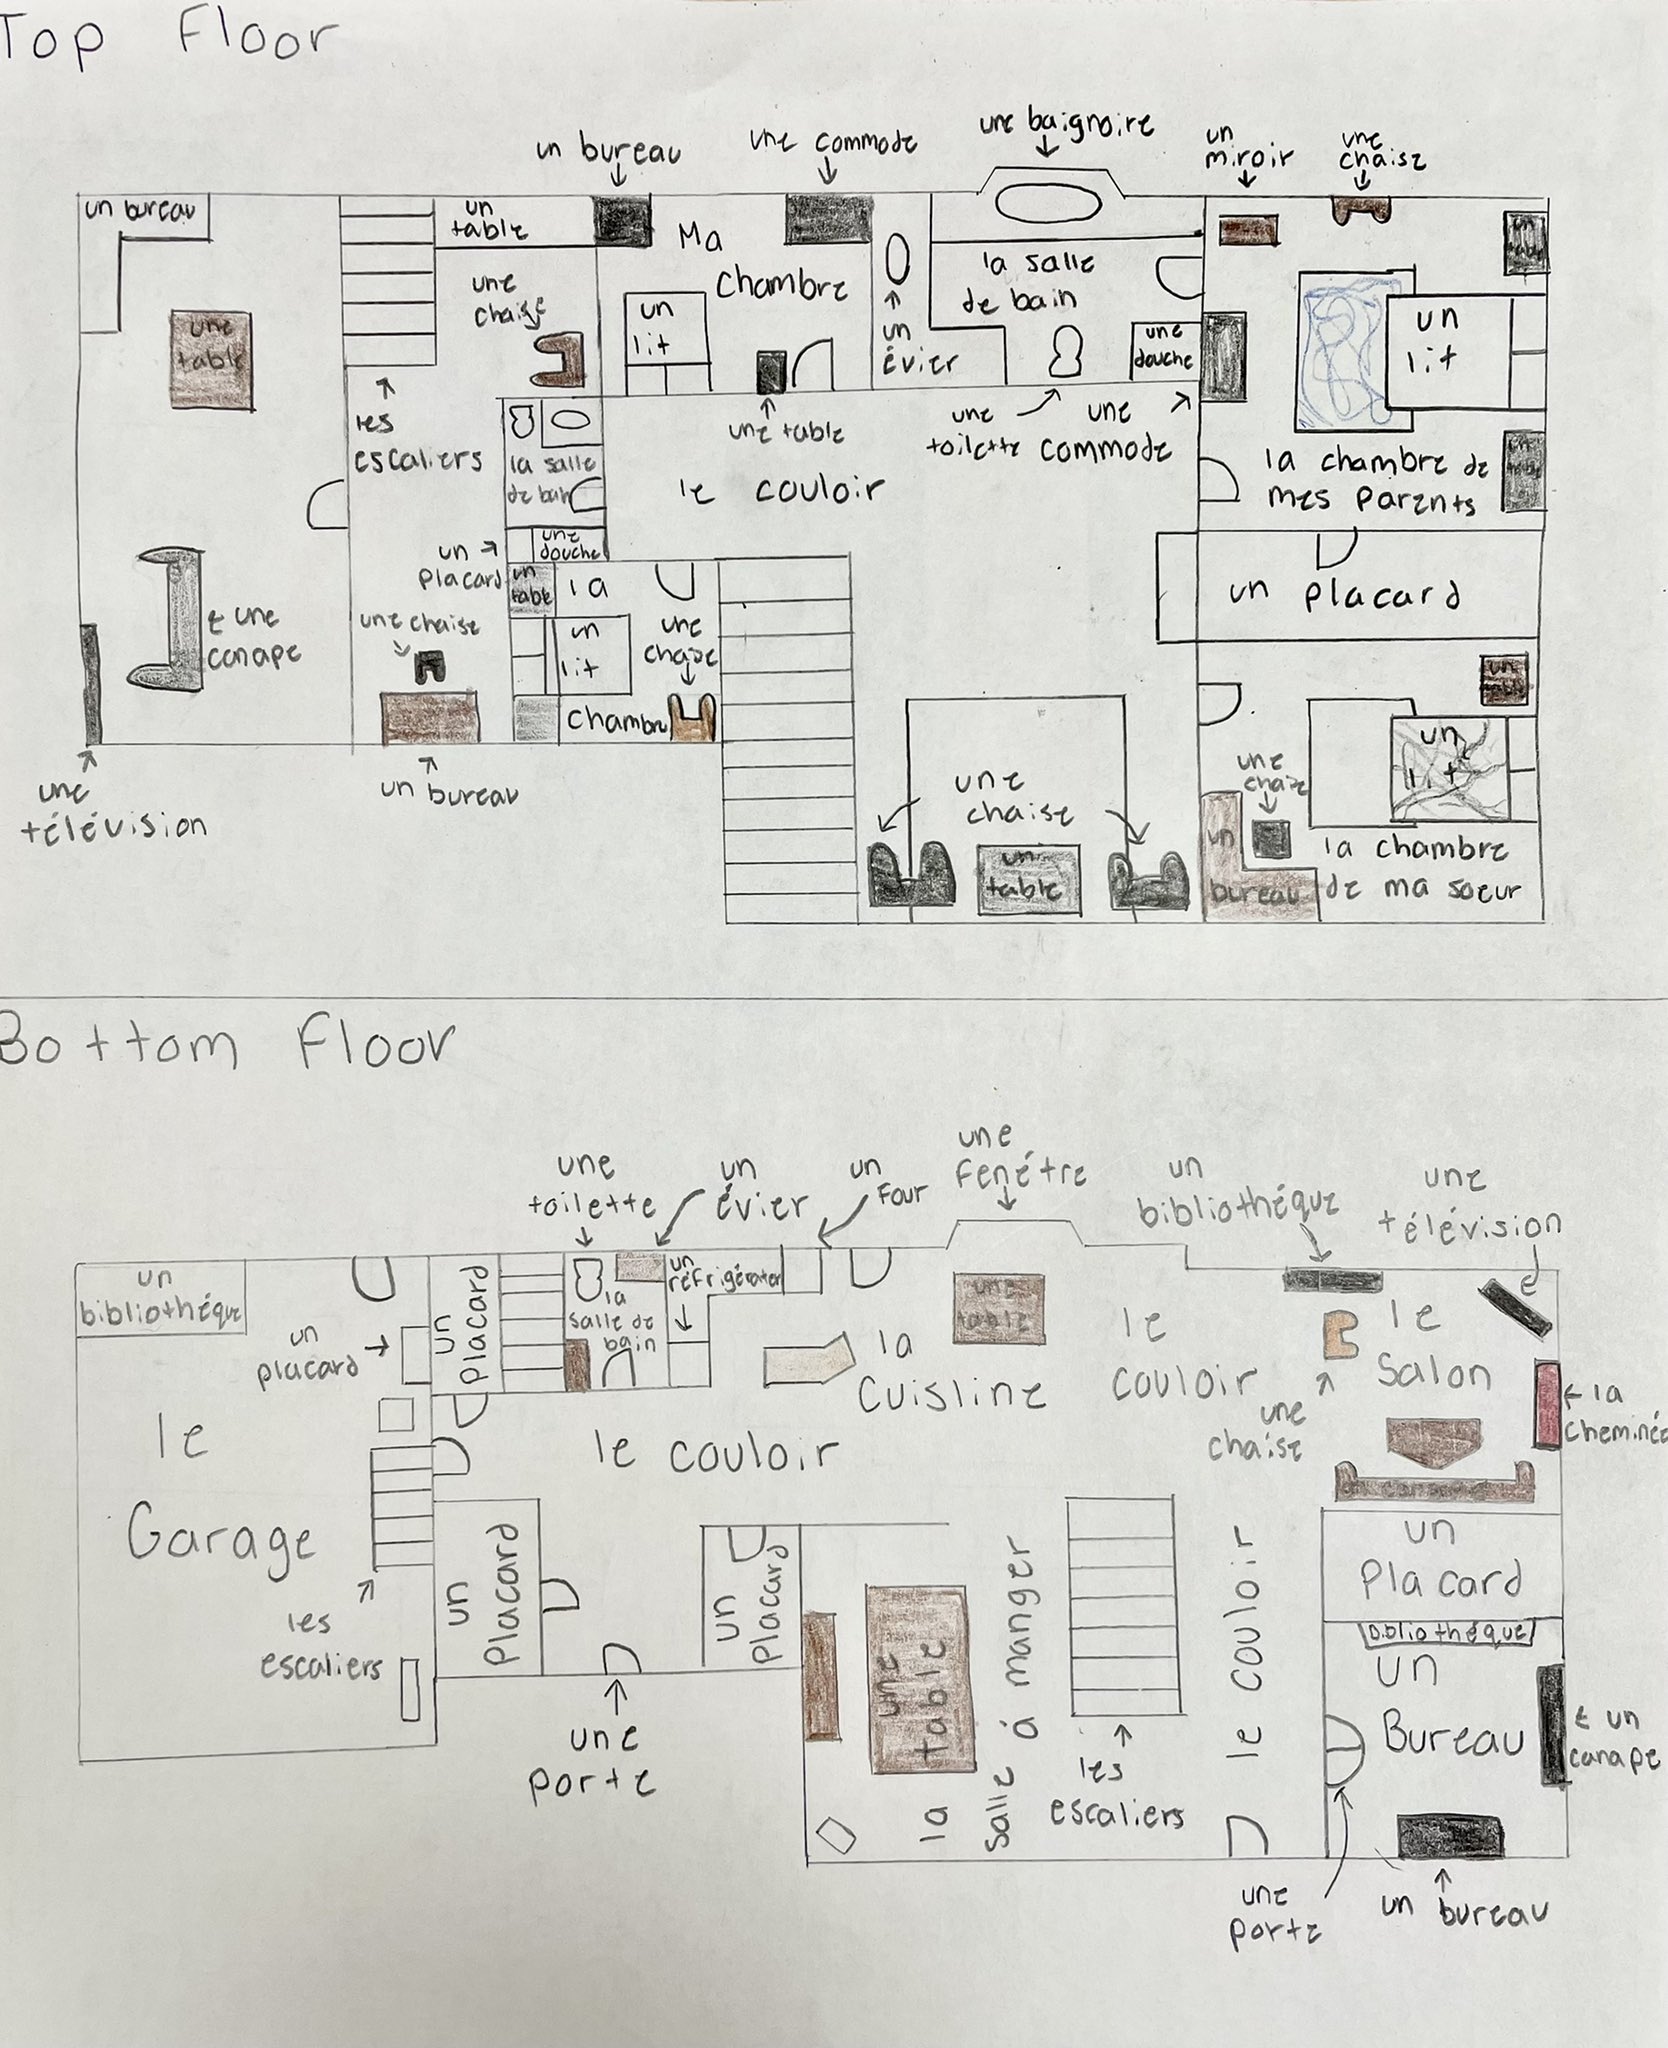 Top Floor
un bureau
une commode
une baignoire
un
miroir
une
chaise
un bureau
un
table
Ma
chambre
la salle
de bain
une
chaise
un
lit
un
évier
une
douche
un
lit
une
table
les
escaliers
une table
une
toilette
une
commode
la salle
de bain
le couloir
la chambre de
mes parents
un
placard
une
douche
un
table
la
un placard
← une
canape
une chaise
un
lit
une
chaise
chambre
un
table
un
lit
une
chaise
une
chaise
un bureau
une
télévision
un
table
un
bureau
la chambre
de ma soeur
Bottom Floor
une
toilette
un
évier
un
Four
une
fenétre
un
bibliothéque
une
télévision
un
bibliothéque
un
placard
un
placard
la
salle de
bain
un
réfrigérater
la
Cuisline
une
table
le
couloir
le
Salon
une
chaise
← la
cheminée
le
Garage
le couloir
un canape
les
escaliers
un
placard
un
placard
une
table
la
salle á manger
le couloir
un
Placard
Bibliothéque
un
Bureau
← un
canape
une
porte
les
escaliers
une
porte
un bureau